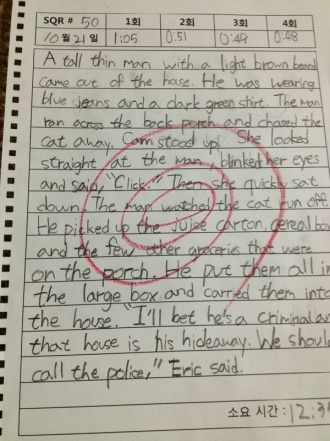 SQR # 50 1회 2회 3회 4회
10월 21일 1:05 0:51 0:49 0:48
A tall thin man with a light brown beard
came out of the house. He was wearing
blue jeans and a dark green shirt. The man
ran across the back porch and chased the
cat away. Cam stood up. She looked
straight at the man, blinked her eyes
and said, "Click." Then she quickly sat
down. The man watched the cat run off.
He picked up the juice carton, cereal box
and the few other groceries that were
on the porch. He put them all in
the large box and carried them into
the house. "I'll bet he's a criminal and
that house is his hideaway. We should
call the police," Eric said.
소요 시간: